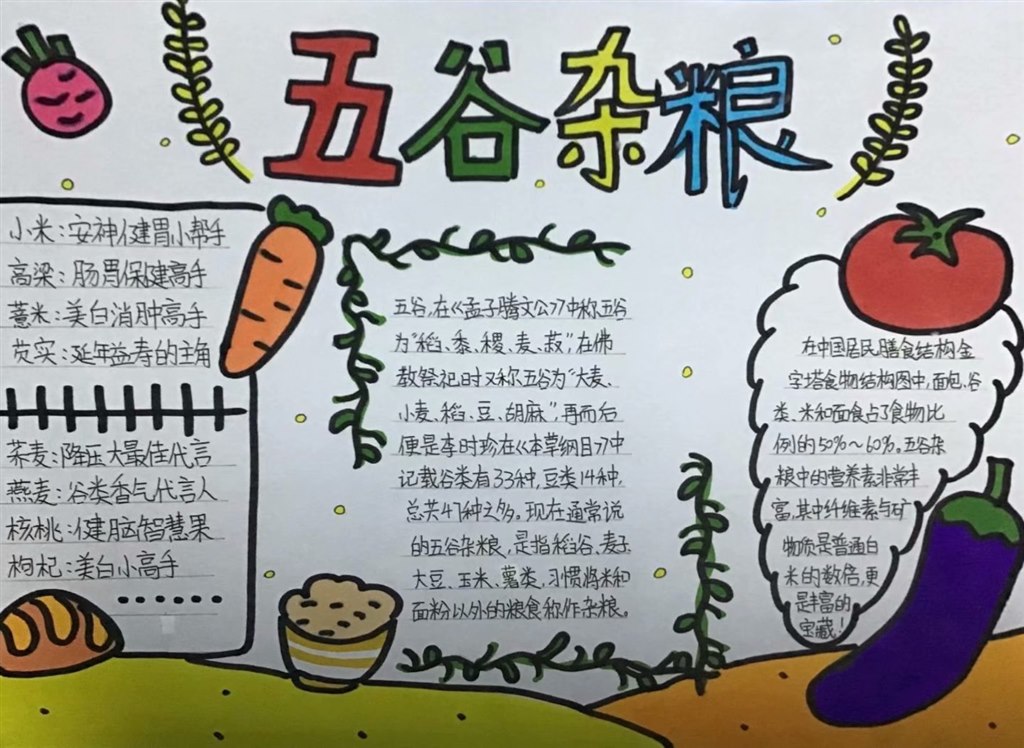 五谷杂粮
小米:安神健胃小帮手
高梁:肠胃保健高手
薏米:美白消肿高手
芡实:延年益寿的主角
荞麦:降压大最佳代言
燕麦:谷类香气代言人
核桃:健脑智慧果
枸杞:美白小高手
五谷,在《孟子腾文公》中称五谷
为"稻、黍、稷、麦、菽",在佛
教祭祀时又称五谷为"大麦、
小麦、稻、豆、胡麻",再而后
便是李时珍在《本草纲目》中
记载谷类有33种,豆类14种,
总共47种之多。现在通常说
的五谷杂粮,是指稻谷、麦子
大豆、玉米、薯类,习惯将米和
面粉以外的粮食称作杂粮。
在中国居民膳食结构金
字塔食物结构图中,面包、谷
类、米和面食占了食物比
例的50%~60%。五谷杂
粮中的营养素非常丰
富,其中纤维素与矿
物质是普通白
米的数倍,更
是丰富的
宝藏!